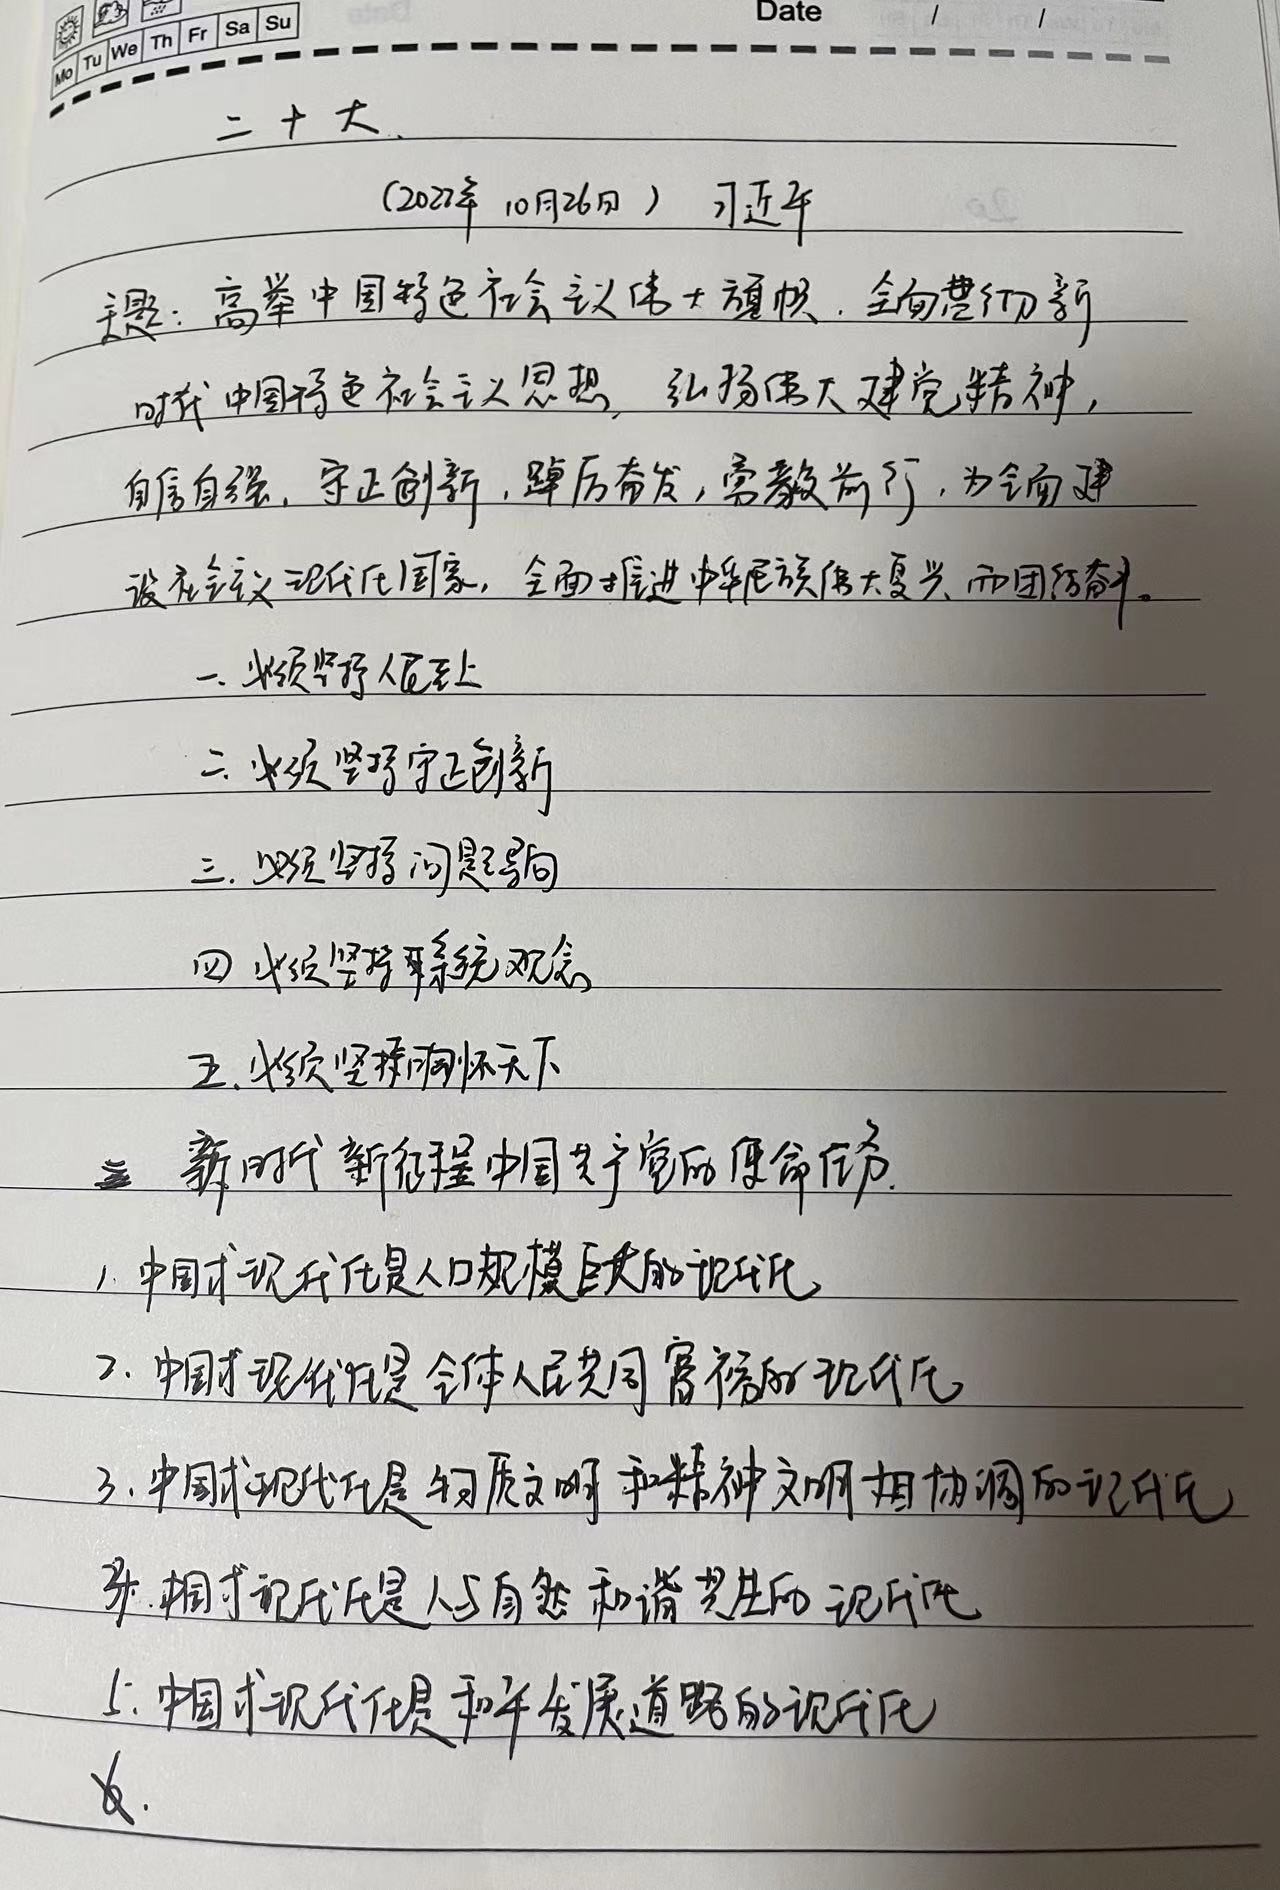 Mo Tu We Th Fr Sa Su
Date / /
二十大.
(2022年 10月26日) 习近平
主题: 高举中国特色社会主义伟大旗帜. 全面贯彻新
时代中国特色社会主义思想, 弘扬伟大建党精神,
自信自强, 守正创新, 踔厉奋发, 勇毅前行, 为全面建
设社会主义现代化国家, 全面推进中华民族伟大复兴而团结奋斗。
一. 必须坚持人民至上
二. 必须坚持守正创新
三. 必须坚持问题导向
四 必须坚持系统观念
五. 必须坚持胸怀天下
三 新时代新征程中国共产党的使命任务.
1. 中国式现代化是人口规模巨大的现代化
2. 中国式现代化是全体人民共同富裕的现代化
3. 中国式现代化是物质文明和精神文明相协调的现代化
4. 中国式现代化是人与自然和谐共生的现代化
5. 中国式现代化是和平发展道路的现代化